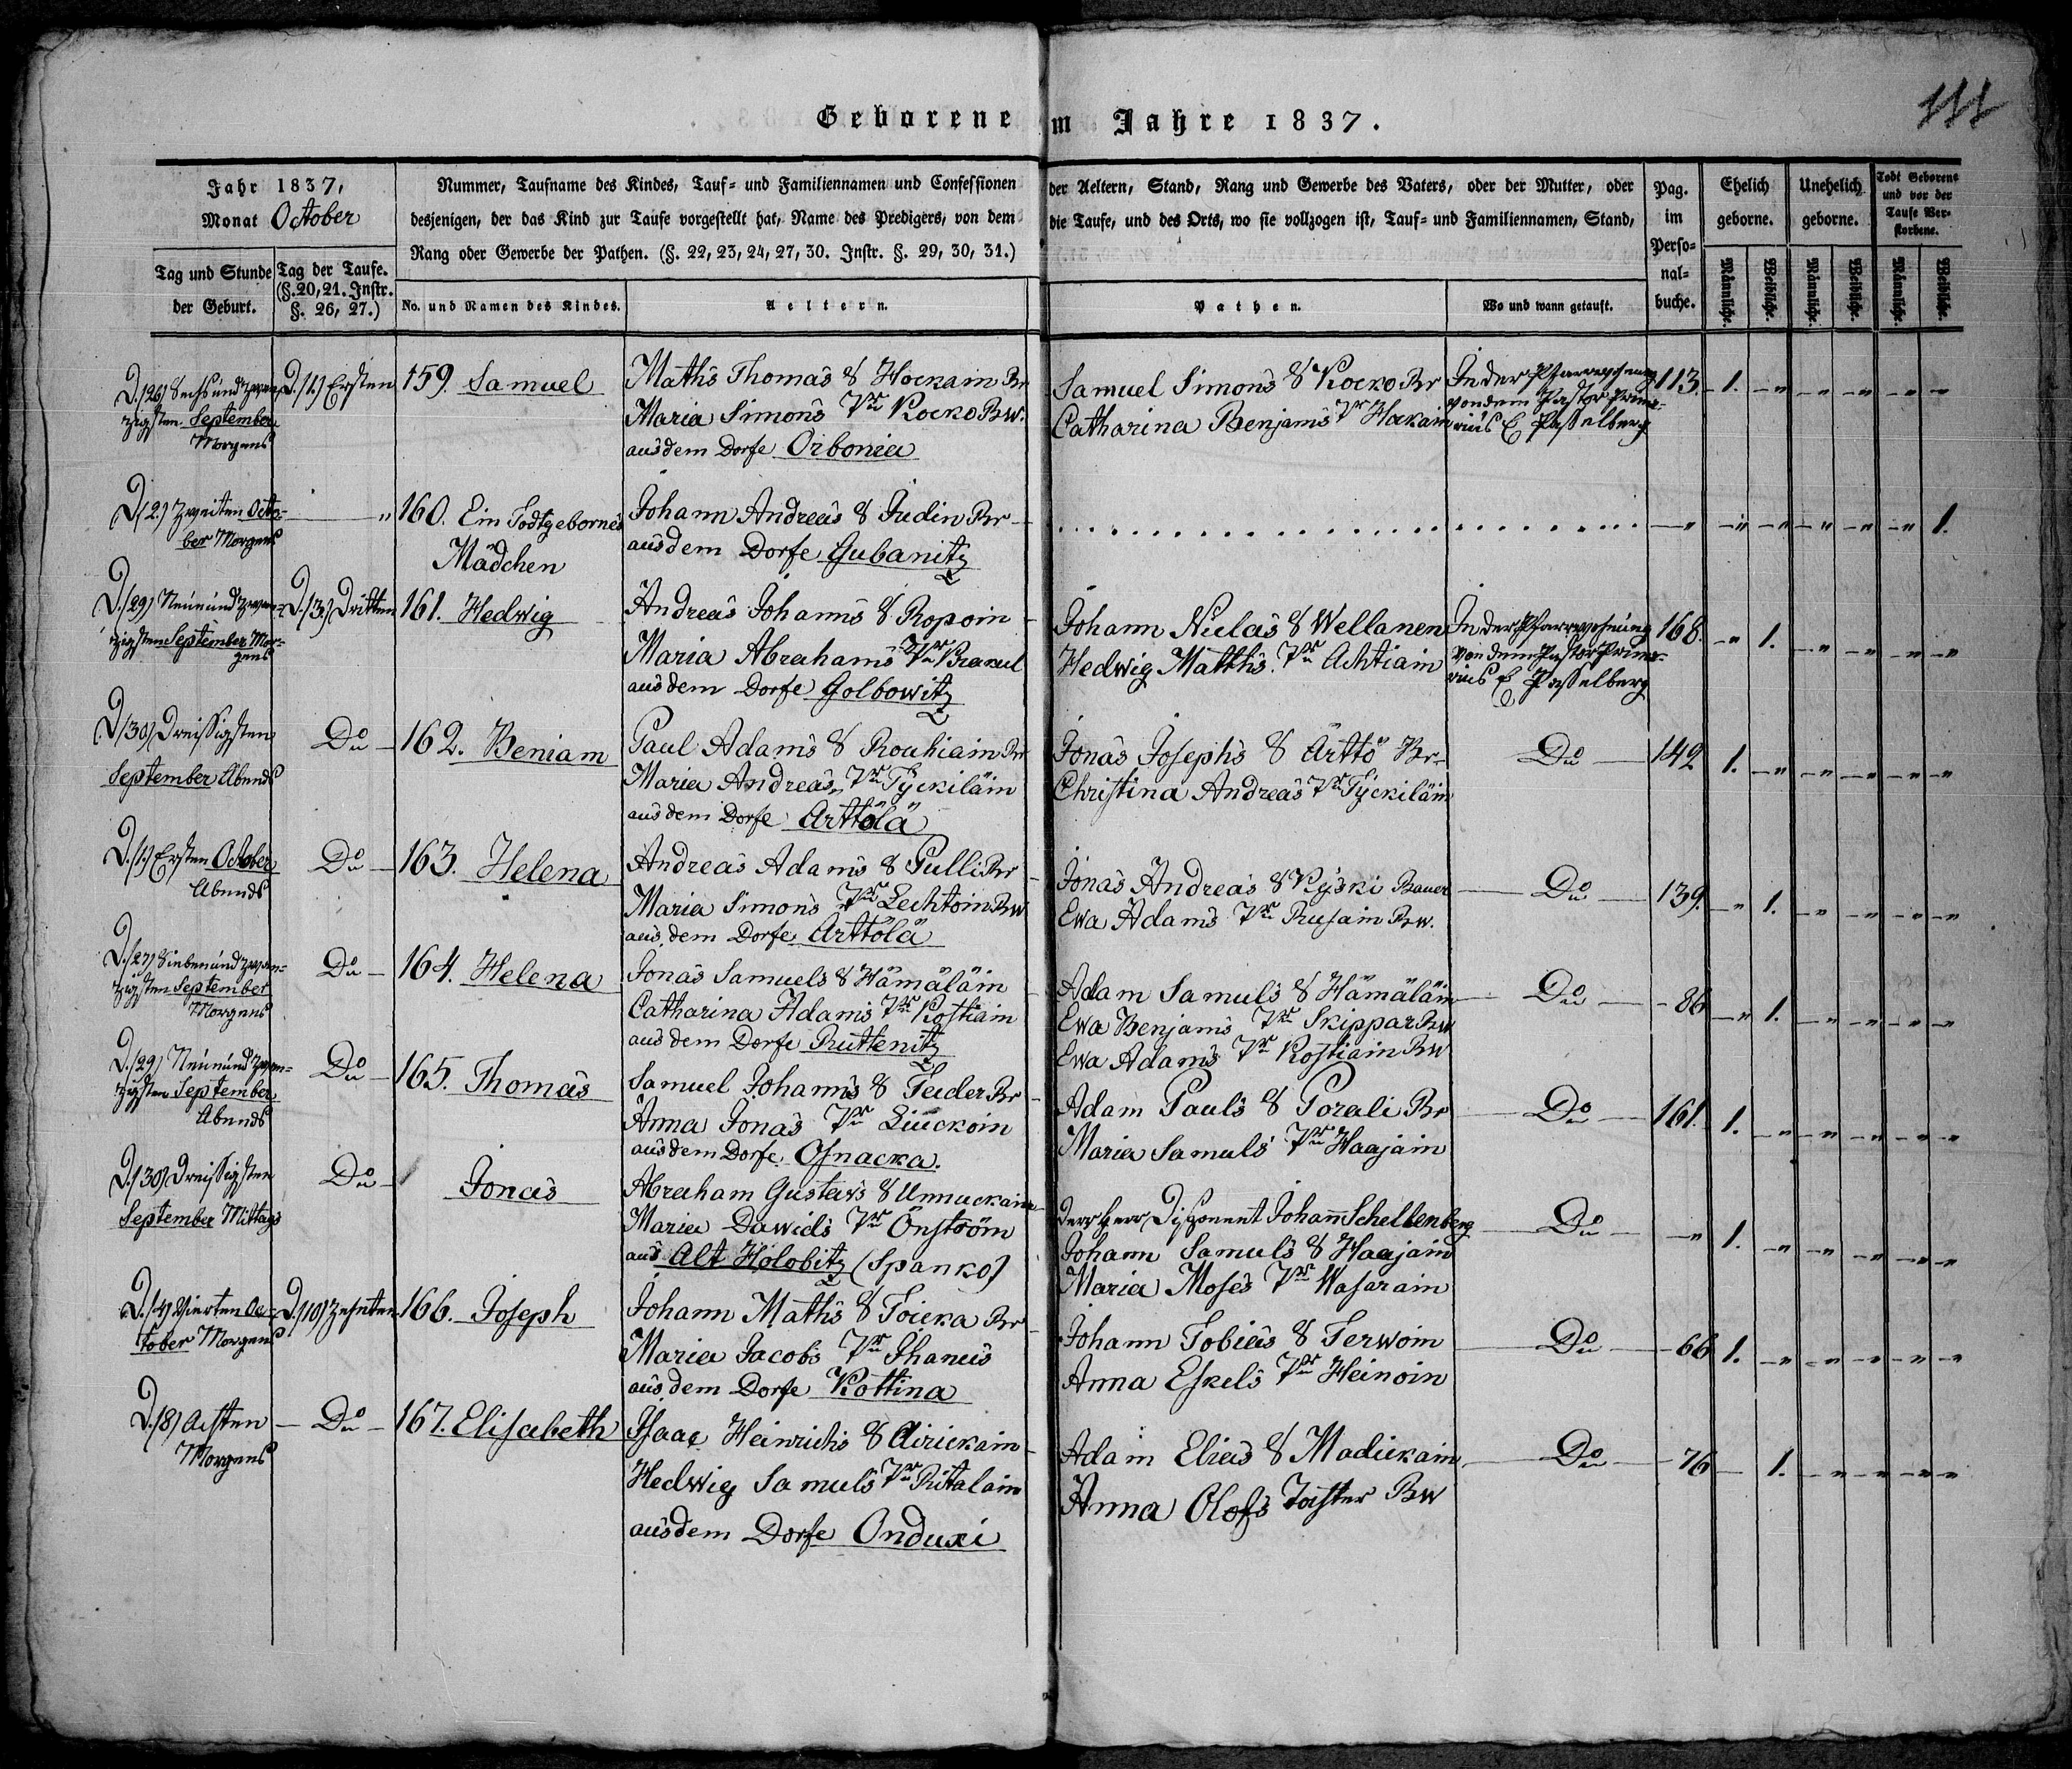 111
Geborene im Jahre 1837.
Jahr 1837,
Monat October
Tag und Stunde der Geburt.
Tag der Taufe. (§. 20, 21. Instr. §. 26, 27.)
Nummer, Taufname des Kindes, Tauf- und Familiennamen und Confessionen der Aeltern, Stand, Rang und Gewerbe des Vaters, oder der Mutter, oder
desjenigen, der das Kind zur Taufe vorgestellt hat, Name des Predigers, von dem die Taufe, und des Orts, wo sie vollzogen ist, Tauf- und Familiennamen, Stand,
Rang oder Gewerbe der Pathen. (§. 22, 23, 24, 27, 30. Instr. §. 29, 30, 31.)
No. und Namen des Kindes.
Aeltern.
Pathen.
Wo und wann getauft.
Pag. im Perso-nal-buche.
Ehelich geborne.
Unehelich geborne.
Todt Geborene und vor der Taufe Ver-storbene.
Männliche. Weibliche. Männliche. Weibliche. Männliche. Weibliche.
D. (26) Sechsundzwan-
zigsten September
Morgens
D. (1.) Ersten
159. Samuel
Maths Thomas S Hockain Br
Maria Simons Tr Kocko Bw.
aus dem Dorfe Orbonia
Samuel Simons S Kocko Br
Catharina Benjams Tr Hakain
In der Pfarrwohnung
von dem Pastor Prima-
rius C Passelberg
113. 1. " " " " "
D. (2.) Zweiten Octo-
ber Morgens
"
160. Ein Todtgebornes
Mädchen
Johann Andreas S Judin Br
aus dem Dorfe Gubanitz
" " " " " " 1.
D. (29) Neunundzwan-
zigsten September Mor-
gens
D. (3.) Dritten
161. Hedwig
Andreas Johanns S Ropoin
Maria Abrahams Tr Brakul
aus dem Dorfe Golbowitz
Johann Niclas S Wellanen
Hedwig Matths. Tr Achtiain
In der Pfarrwohnung
von dem Pastor Prima-
rius C Passelberg
168. " 1. " " " "
D. (30) Dreissigsten
September Abends
Do
162. Beniam
Paul Adams S Rouhiain Br
Maria Andreas Tr Tÿckiläin
aus dem Dorfe Arttölä
Jonas Josephs S Arttö Br
Christina Andreas Tr Tÿckiläin
Do
142 1. " " " " "
D. (1.) Ersten October
Abends
Do
163. Helena
Andreas Adams S Pulli Br
Maria Simons Tr Lechtoin Bw
aus dem Dorfe Arttölä
Jonas Andreas S Kÿski Bauer
Ewa Adams Tr Rusain Bw.
Do
139. " 1. " " " "
D. (27) Siebenundzwan-
zigsten September
Morgens
Do
164. Helena
Jonas Samuels S Hämäläin
Catharina Adams Tr Kostiain
aus dem Dorfe Ruttenitz
Adam Samuls S Hämäläin
Ewa Benjams Tr Skippar Bw
Ewa Adams Tr Kostiain Bw
Do
86 " 1. " " " "
D. (29) Neunundzwan-
zigsten September
Abends
Do
165. Thomas
Samuel Johanns S Teder Br
Anna Jonas Tr Liuckoin
aus dem Dorfe Osnacka.
Adam Pauls S Porali Br
Maria Samuls Tr Haajain
Do
161. 1. " " " " "
D. (30) Dreissigsten
September Mittags
Do
Jonas
Abraham Gustavs S Unnuckain
Maria Dawids Tr Önström
aus Alt Holobitz (Spanko)
Derr Herr Disponent Johann Schellenberg
Johann Samuls S Haajain
Maria Moses Tr Wasarain
Do
" 1. " " " " "
D. (4) Vierten Oc-
tober Morgens
D. (10) Zehnten
166. Joseph
Johann Maths S Toicka Br
Maria Jacobs Tr Ihanus
aus dem Dorfe Kottina
Johann Tobias S Terwoin
Anna Eskels Tr Heinoin
Do
66 1. " " " " "
D. (8) Achten
Morgens
Do
167. Elisabeth
Isaac Heinrichs S Airickain
Hedwig Samuls Tr Ritalain
aus dem Dorfe Onduxi
Adam Elias S Madickain
Anna Olofs Tochter Bw
Do
76 1. " " " "